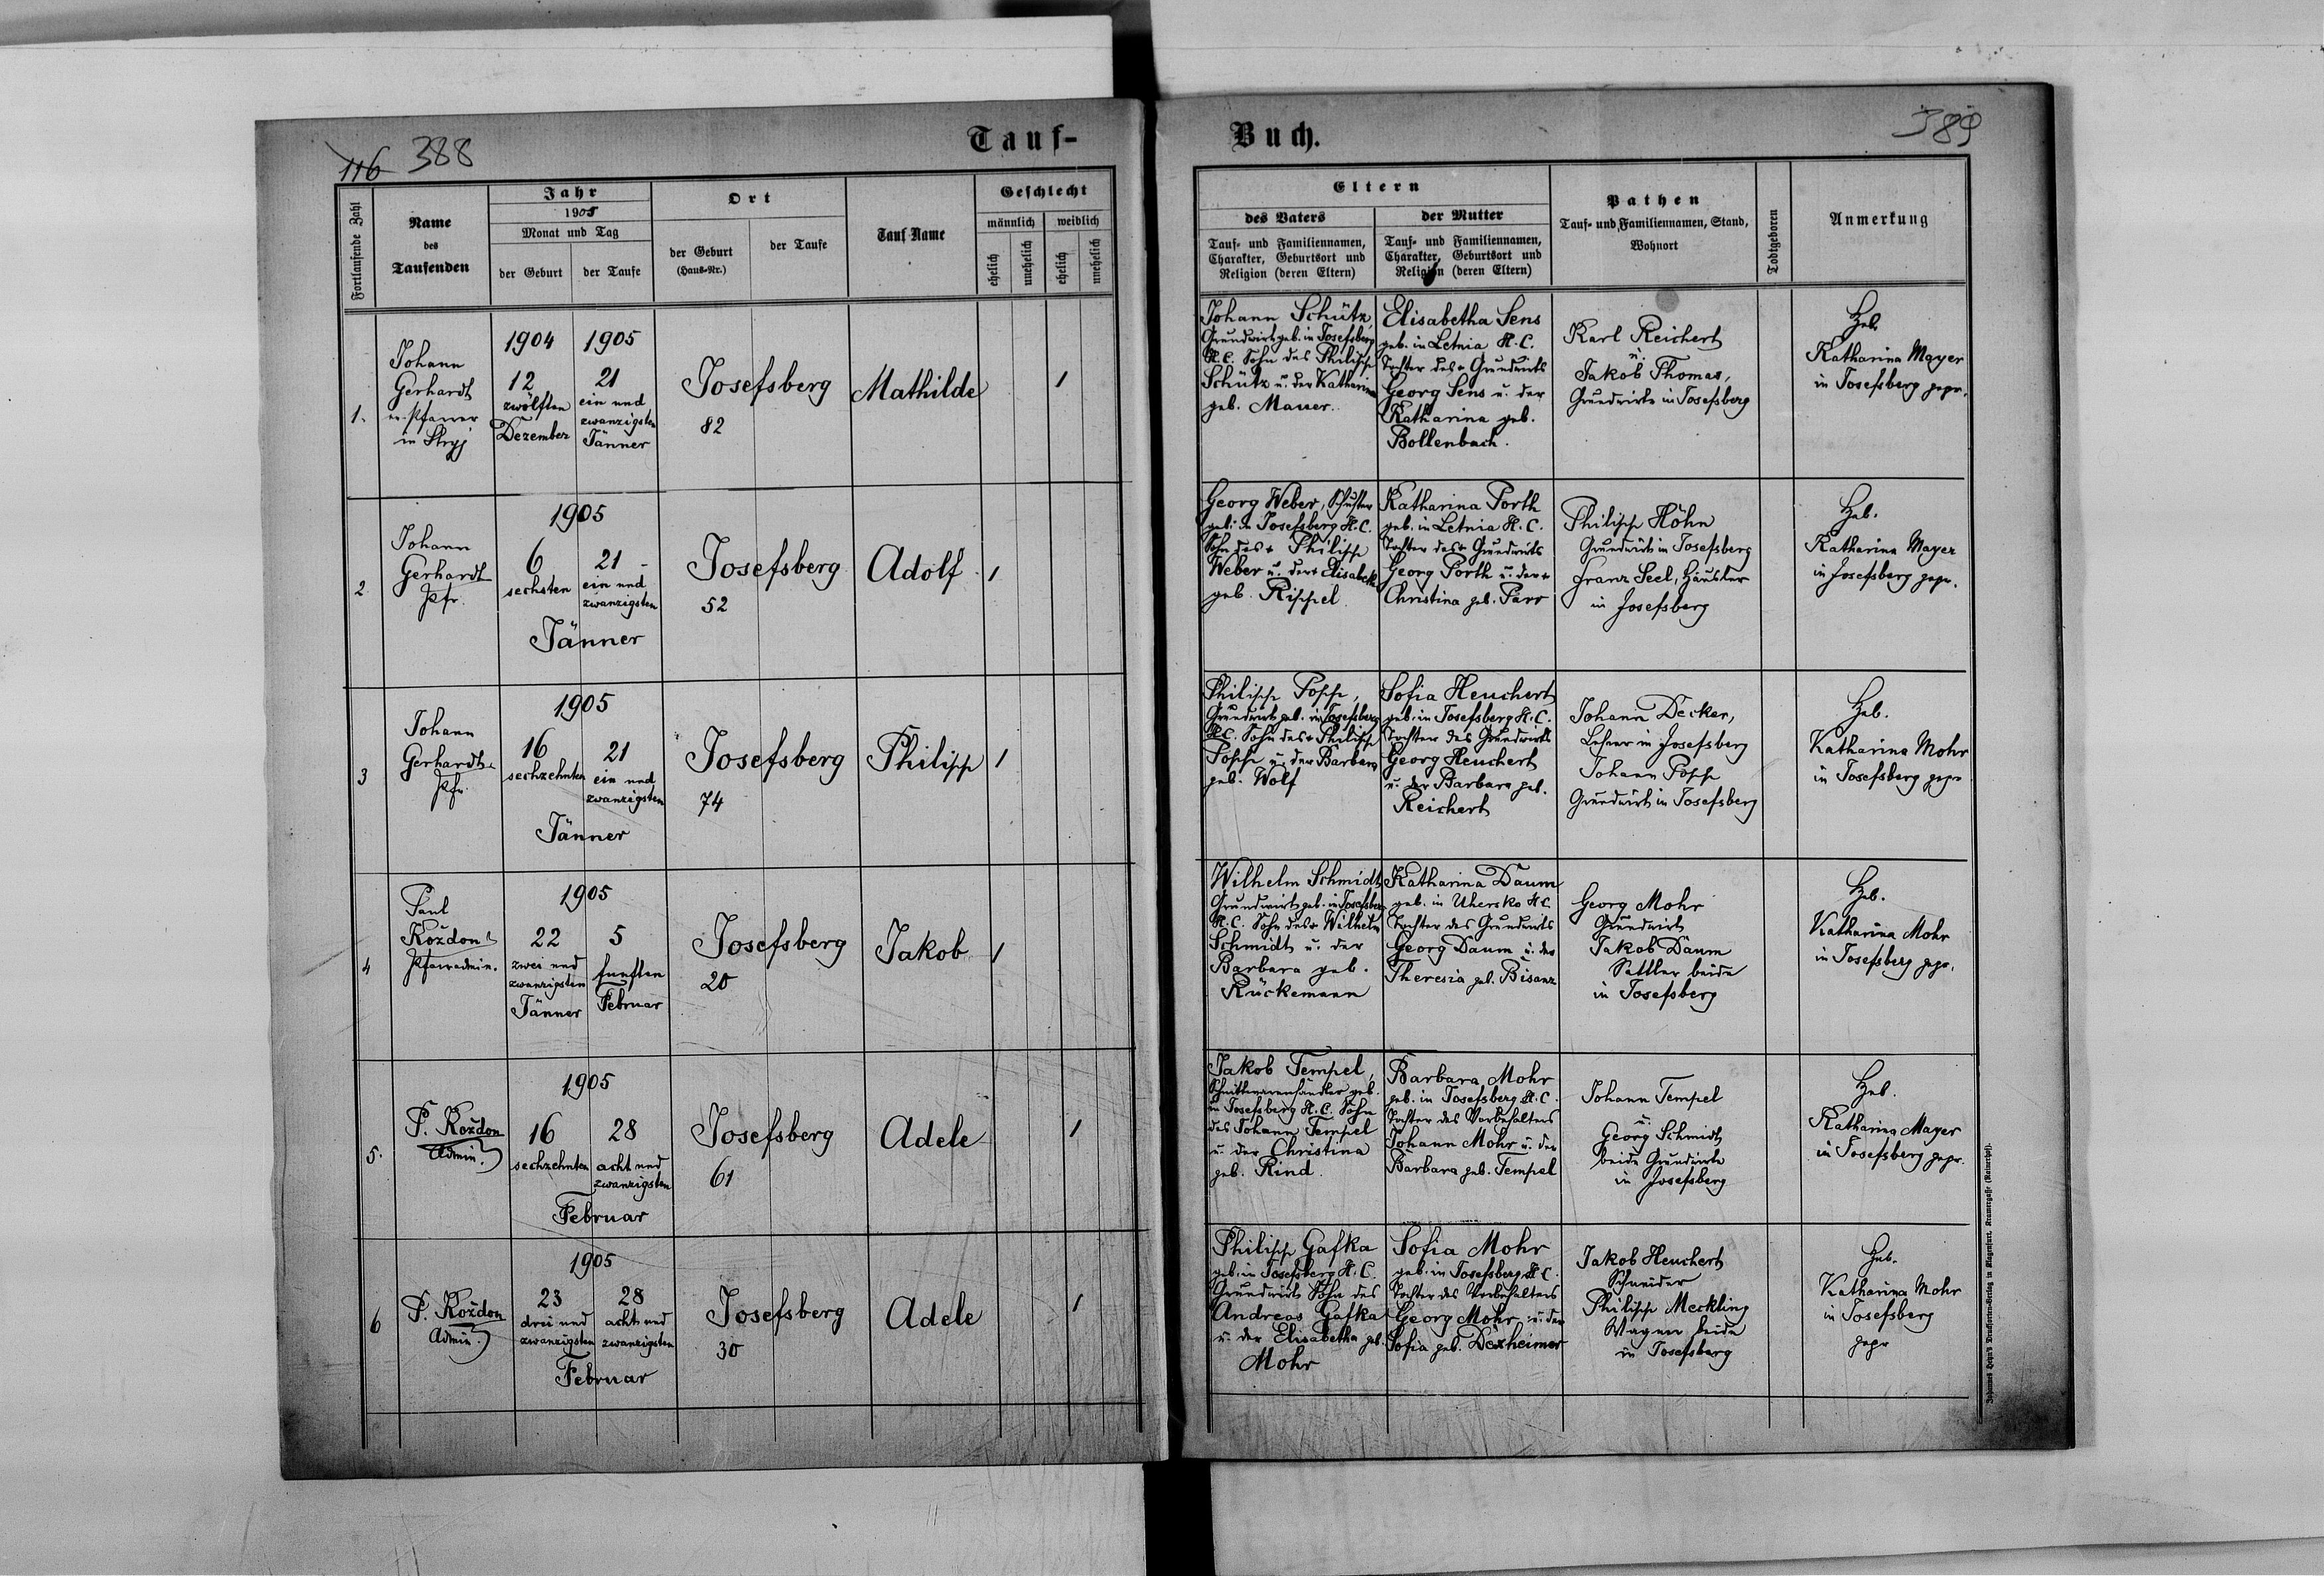 116 388
Tauf-
Fortlaufende Zahl
Name
des
Taufenden
Jahr
1905
Monat und Tag
der Geburt
der Taufe
Ort
der Geburt
(Haus-Nr.)
der Taufe
Tauf Name
Geschlecht
männlich
weiblich
ehelich
unehelich
ehelich
unehelich
1.
Johann
Gerhardt
ev. Pfarrer
in Stryj
1904
12
zwölften
Dezember
1905
21
ein und
zwanzigsten
Jänner
Josefsberg
82
Mathilde
1
2
Johann
Gerhardt
Pfr.
1905
6
sechsten
21
ein und
zwanzigsten
Jänner
Josefsberg
52
Adolf
1
3
Johann
Gerhardt
Pfr.
1905
16
sechzehnten
21
ein und
zwanzigsten
Jänner
Josefsberg
74
Philipp
1
4
Paul
Kożdon
Pfarradmin.
1905
22
zwei und
zwanzigsten
Jänner
5
fünften
Februar
Josefsberg
20
Jakob
1
5.
P. Kożdon
Admin.
1905
16
sechzehnten
28
acht und
zwanzigsten
Februar
Josefsberg
61
Adele
1
6
P. Kożdon
Admin.
1905
23
drei und
zwanzigsten
28
acht und
zwanzigsten
Februar
Josefsberg
30
Adele
1
389
Buch.
Eltern
des Vaters
Tauf- und Familiennamen,
Charakter, Geburtsort und
Religion (deren Eltern)
der Mutter
Tauf- und Familiennamen,
Charakter, Geburtsort und
Religion (deren Eltern)
Pathen
Tauf- und Familiennamen, Stand,
Wohnort
Todtgeboren
Anmerkung
Johann Schütz,
Grundwirt geb. in Josefsberg
H.C. Sohn des Philipp
Schütz u. der Katharina
geb. Mauer.
Elisabetha Sens
geb. in Letnia H.C.
Tochter des + Grundwirts
Georg Sens u. der
Katharina geb.
Bollenbach.
Karl Reichert
u.
Jakob Thomas,
Grundwirte in Josefsberg
Heb.
Katharina Mayer
in Josefsberg gepr.
Georg Weber, Schuster
geb. in Josefsberg H.C.
Sohn des + Philipp
Weber u. der + Elisabeth
geb. Rippel
Katharina Porth
geb. in Letnia H.C.
Tochter des + Grundwirts
Georg Porth u. der +
Christina geb. Parr
Philipp Höhn
Grundwirt in Josefsberg
Franz Seel, Häusler
in Josefsberg
Heb.
Katharina Mayer
in Josefsberg gepr.
Philipp Popp,
Grundwirt geb. in Josefsberg
H.C. Sohn des + Philipp
Popp u. der Barbara
geb. Wolf
Sofia Heuchert
geb. in Josefsberg H.C.
Tochter des Grundwirts
Georg Heuchert
u. der Barbara geb.
Reichert
Johann Decker,
Lehrer in Josefsberg
Johann Popp
Grundwirt in Josefsberg
Heb.
Katharina Mohr
in Josefsberg gepr
Wilhelm Schmidt,
Grundwirt geb. in Josefsberg
H.C. Sohn des + Wilhelm
Schmidt u. der
Barbara geb.
Rückemann
Katharina Daum
geb. in Uhersko H.C.
Tochter des Grundwirts
Georg Daum u. der
Theresia geb. Bisanz
Georg Mohr
Grundwirt
Jakob Daum
Sattler beide
in Josefsberg
Heb.
Katharina Mohr
in Josefsberg gepr.
Jakob Tempel,
Schnittwarenhändler geb.
in Josefsberg H.C. Sohn
des Johann Tempel
u. der Christina
geb. Rind.
Barbara Mohr
geb. in Josefsberg H.C.
Tochter des Vorbehalters
Johann Mohr u. der
Barbara geb. Tempel
Johann Tempel
u.
Georg Schmidt
beide Grundwirte
in Josefsberg
Heb.
Katharina Mayer
in Josefsberg gepr.
Philipp Gafka
geb. in Josefsberg H.C.
Grundwirt Sohn des
Andreas Gafka
u. der Elisabetha geb.
Mohr
Sofia Mohr
geb. in Josefsberg H.C.
Tochter des Vorbehalters
Georg Mohr u. der
Sofia geb. Dexheimer
Jakob Heuchert
Schneider
Philipp Meckling
Wagner beide
in Josefsberg
Heb.
Katharina Mohr
in Josefsberg
gepr